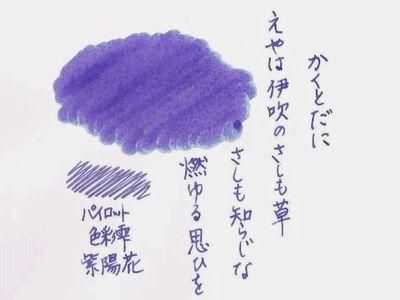 かくとだに
えやは伊吹のさしも草
さしも知らじな
燃ゆる思ひを
パイロット
色彩雫
紫陽花